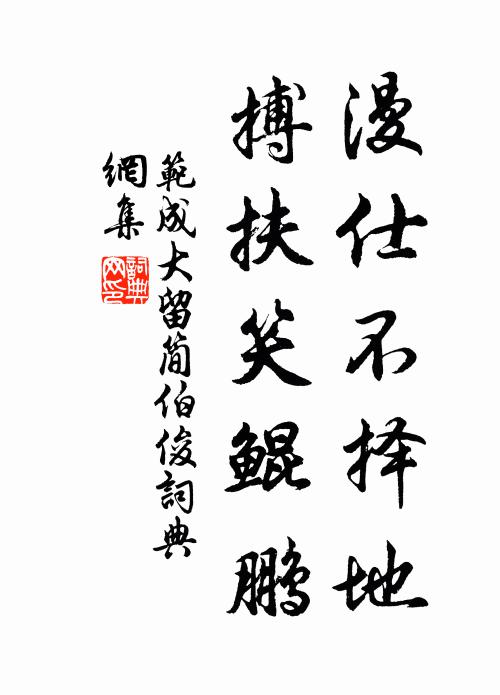 漫仕不择地
搏扶笑鲲鹏
範成大留简伯俊詞典
網集
詞典
网印